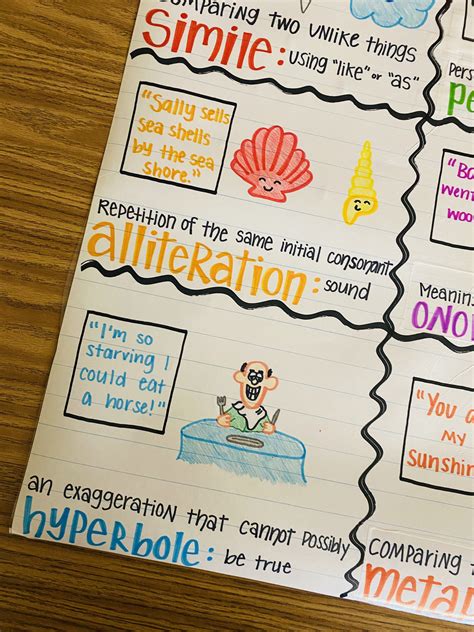 COMPARING TWO UNLIKE THINGS
Simile: using "like" or "as"
"Sally sells
sea shells
by the sea
shore."
Repetition of the same initial consonant
alliteration: sound
"I'm so
starving I
could eat
a horse!"
an exaggeration that cannot possibly
hyperbole: be true
Pers
pe
"Bo
went
woo
Meanin
ONO
"You a
my
Sunshin
COMPARING
meta